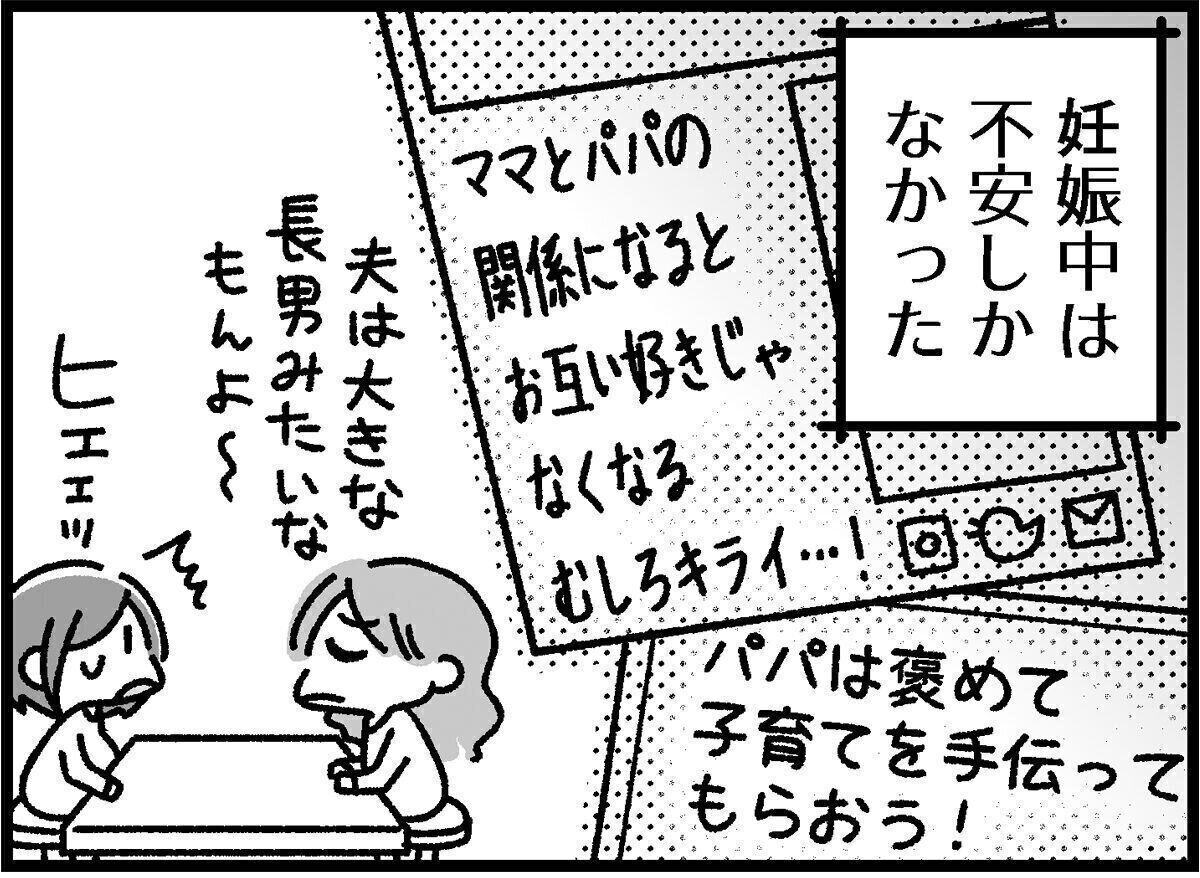 妊娠中は
不安しか
なかった
ママとパパの
関係になると
お互い好きじゃ
なくなる
むしろキライ…！
パパは褒めて
子育てを手伝って
もらおう！
夫は大きな
長男みたいな
もんよ〜
ヒエエッ